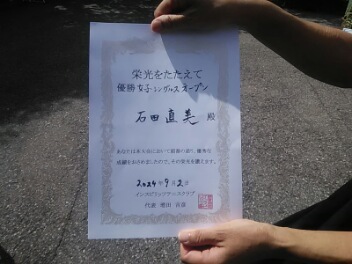 栄光をたたえて
優勝 女子シングルス オープン
石田直美 殿
あなたは本大会において頭書の通り、優秀な
成績をおさめましたので、その栄光を讃えます。
2024年9月2日
インスピリッツテニスクラブ
代表 増田 吉彦